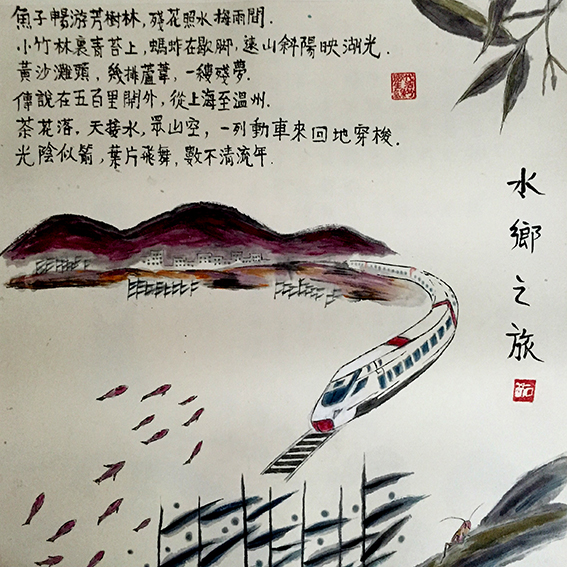 魚子暢游芳樹林，殘花照水梅雨間．
小竹林裏青苔上，螞蚱在歇腳，遠山斜陽映湖光．
黃沙灘頭，幾排蘆葦，一縷殘夢．
傳說在五百里開外，從上海至溫州．
茶花落，天接水，眾山空，一列動車來回地穿梭．
光陰似箭，葉片飛舞，數不清流年．
水鄉之旅